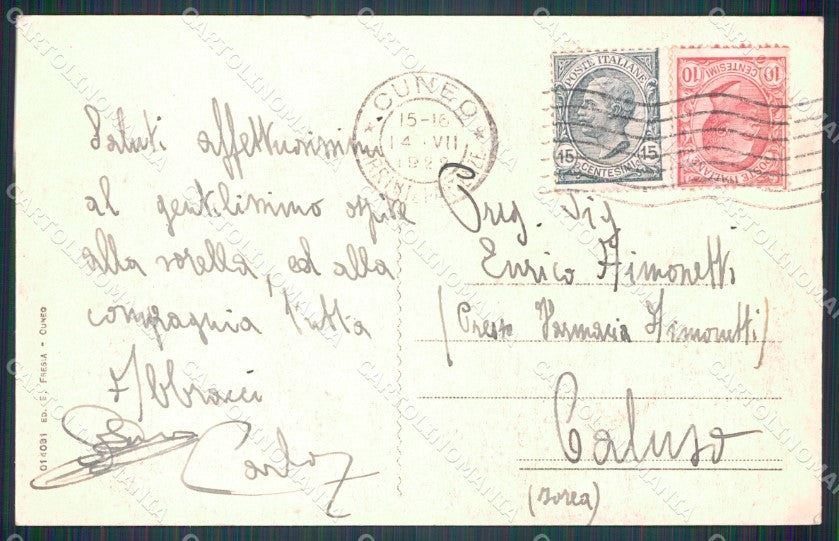 Saluti affettuosissimi
al gentilissimo ospite
alla sorella, ed alla
compagnia tutta
Abbracci
Carlo
CUNEO
15-16
14 · VII
1922
POSTE ITALIANE
15 CENTESINI 15
10 CENTESIMI 10
POSTE ITALIANE
Preg. Sig
Enrico Aimonetti
(Presso Farmacia Aimonetti)
Caluso
(Ivrea)
014091 ED. E. FRESIA - CUNEO
CARTOLINOMANIA